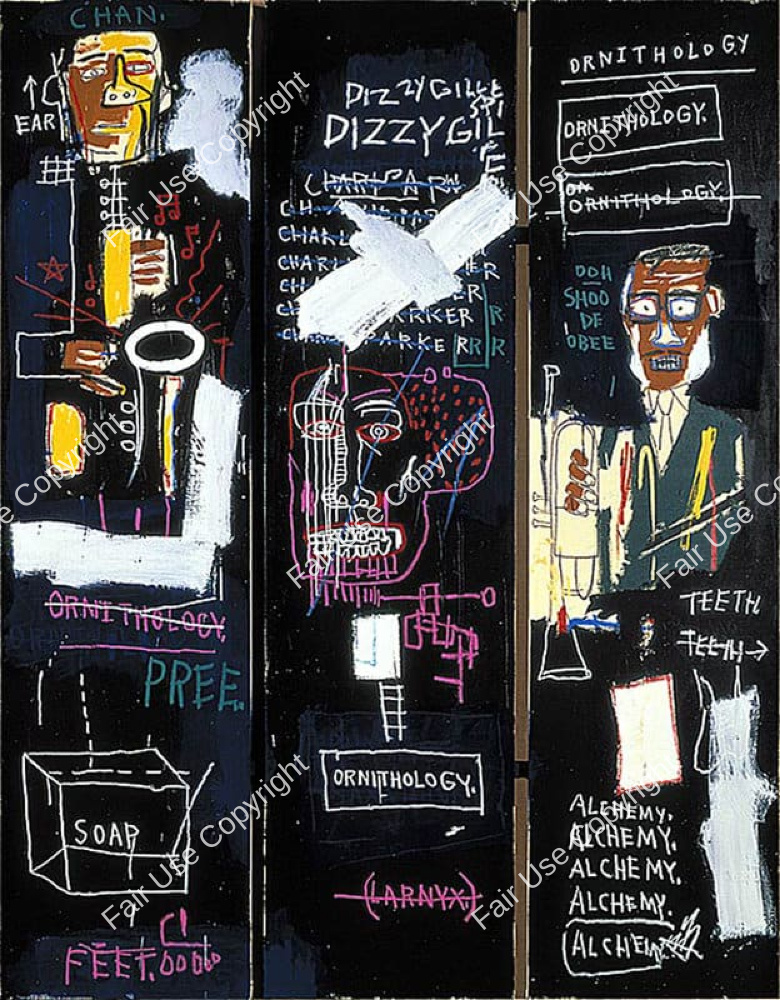 CHAN.
EAR
ORNITHOLOGY.
PREE.
SOAP
FEET.
DIZZYGILLE
SPI
DIZZYGIL
CHARL
CHAR
ARKER
ARKER
R
R
R
ORNITHOLOGY.
(LARNYX.)
ORNITHOLOGY
ORNITHOLOGY.
ORNITHOLOGY.
OOH
SHOO
DE
OBEE
TEETH
TEETH
ALCHEMY.
ALCHEMY.
ALCHEMY.
ALCHEMY.
ALCHEM
Fair Use Copyright
Fair Use Copyright
Fair Use Copyright
Fair Use Copyright
Fair Use Copyright
Fair Use Copyright